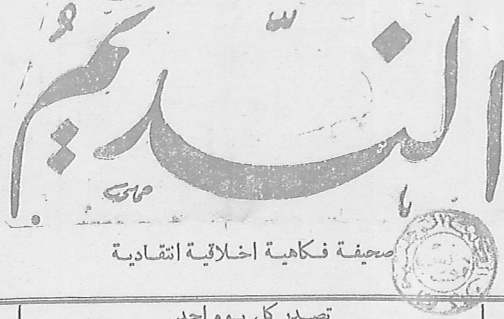 النديم
صحيفة فكاهية اخلاقية انتقادية
تصدر كل يوم احد